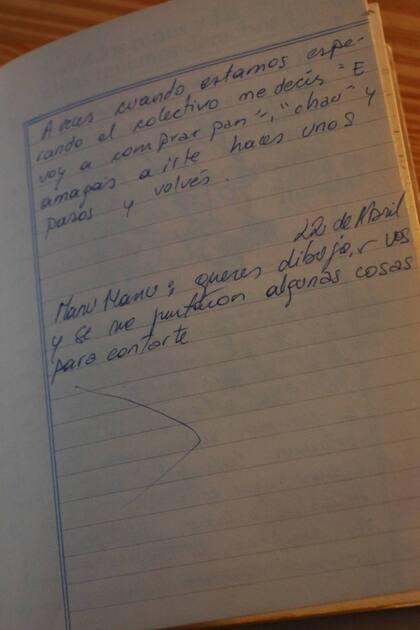 A veces cuando estamos espe-
rando el colectivo me decís "E
voy a comprar pan", "chau" y
amagás a irte haces unos
pasos y volvés.
22 de Abril
Manu Manu: queres dibujar vos
y se me juntaron algunas cosas
para contarte